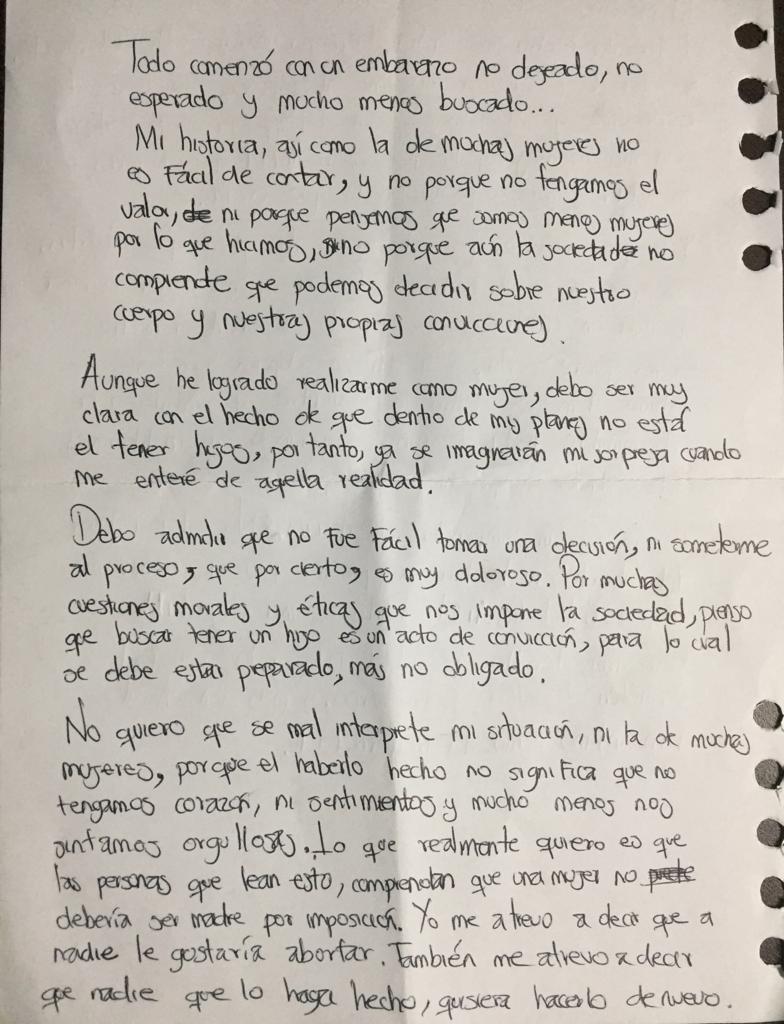 Todo comenzó con un embarazo no deseado, no
esperado y mucho menos buscado...
Mi historia, así como la de muchas mujeres no
es Fácil de contar, y no porque no tengamos el
valor, de ni porque pensemos que somos menos mujeres
por lo que hicimos, sino porque aún la sociedad no
comprende que podemos decidir sobre nuestro
cuerpo y nuestras propias convicciones.
Aunque he logrado realizarme como mujer, debo ser muy
clara con el hecho de que dentro de mis planes no está
el tener hijos, por tanto, ya se imaginarán mi sorpresa cuando
me enteré de aquella realidad.
Debo admitir que no fue Fácil tomar una decisión, ni someterme
al proceso, que por cierto, es muy doloroso. Por muchas
cuestiones morales y éticas que nos impone la sociedad, pienso
que buscar tener un hijo es un acto de convicción, para lo cual
se debe estar preparado, más no obligado.
No quiero que se mal interprete mi situación, ni la de muchas
mujeres, porque el haberlo hecho no significa que no
tengamos corazón, ni sentimientos y mucho menos nos
sintamos orgullosas. Lo que realmente quiero es que
las personas que lean esto, comprendan que una mujer no
debería ser madre por imposición. Yo me atrevo a decir que a
nadie le gustaría abortar. También me atrevo a decir
que nadie que lo haya hecho, quisiera hacerlo de nuevo.